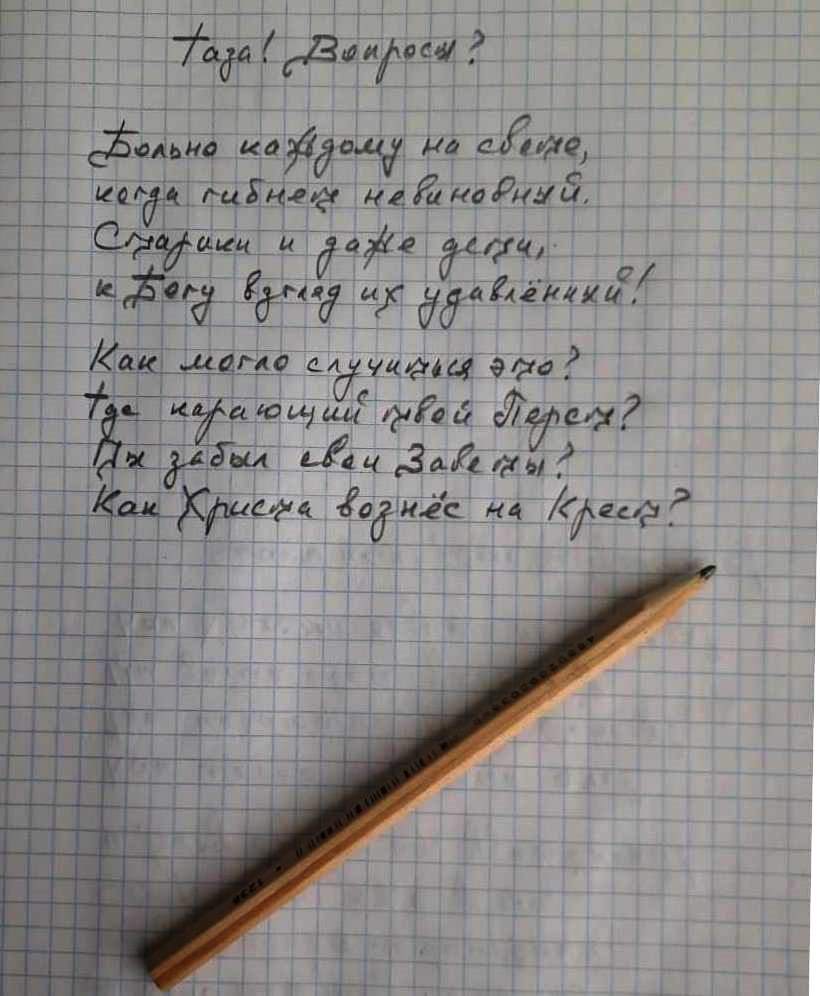 Газа! Вопросы?
Больно каждому на свете,
когда гибнет невиновный.
Старики и даже дети,
к Богу взгляд их удавлённый!
Как могло случиться это?
Где карающий твой Перст?
Ты забыл свои Заветы?
Как Христа вознёс на Крест?